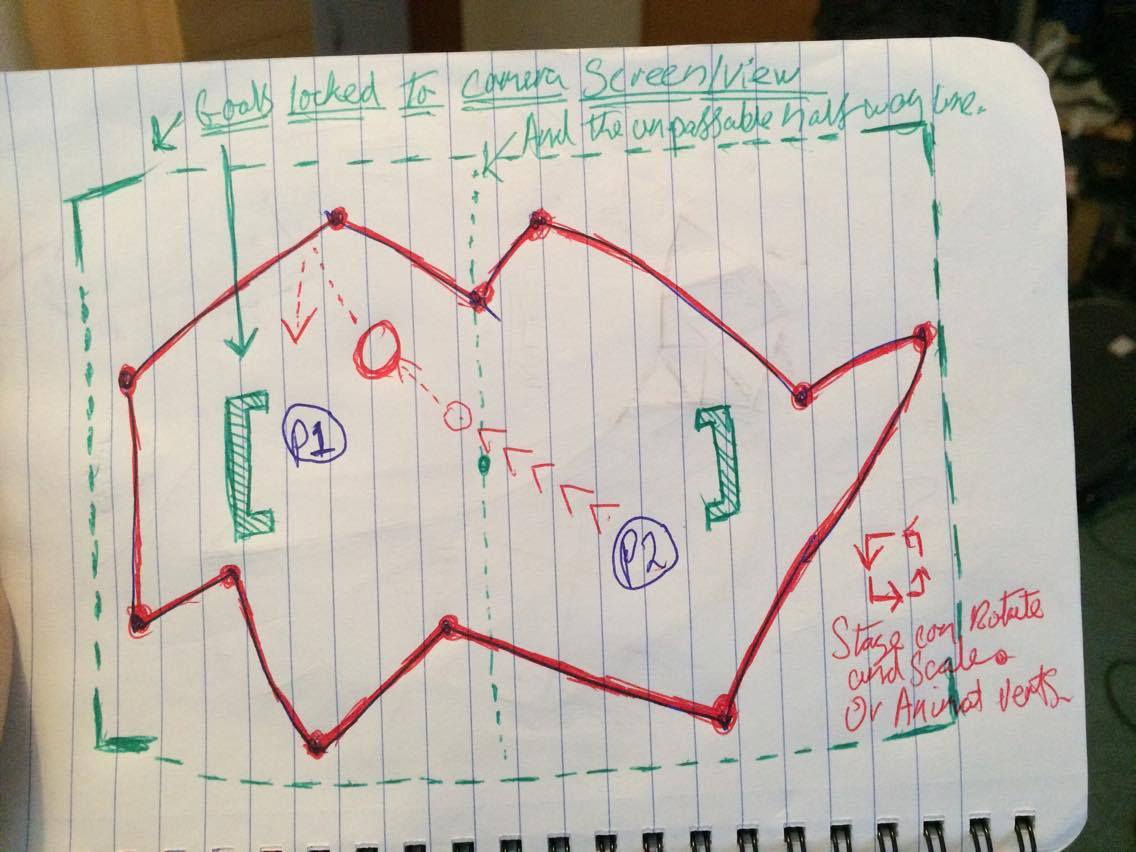 Goals Locked To Camera Screen/View
And the unpassable half way line.
P1
P2
Stage can Rotate
and Scale.
Or Animat Verts.